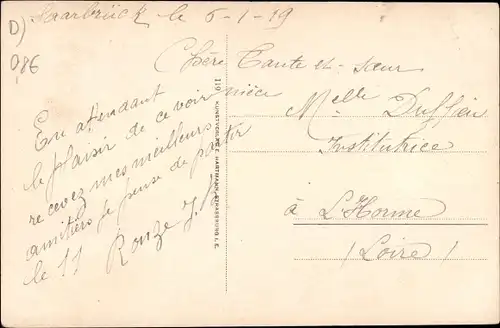 Saarbrück le 6-1-19
D)
086
Chère Tante et sœur
En attendant
le plaisir de ce voir
recevez mes meilleurs
amitiés je pense de partir
le 11 Ronze J.
nièce
119 KUNSTVERLAG E. HARTMANN, STRASSBURG i. E.
Melle Duffieu
Institutrice
à L'Horme
(Loire)